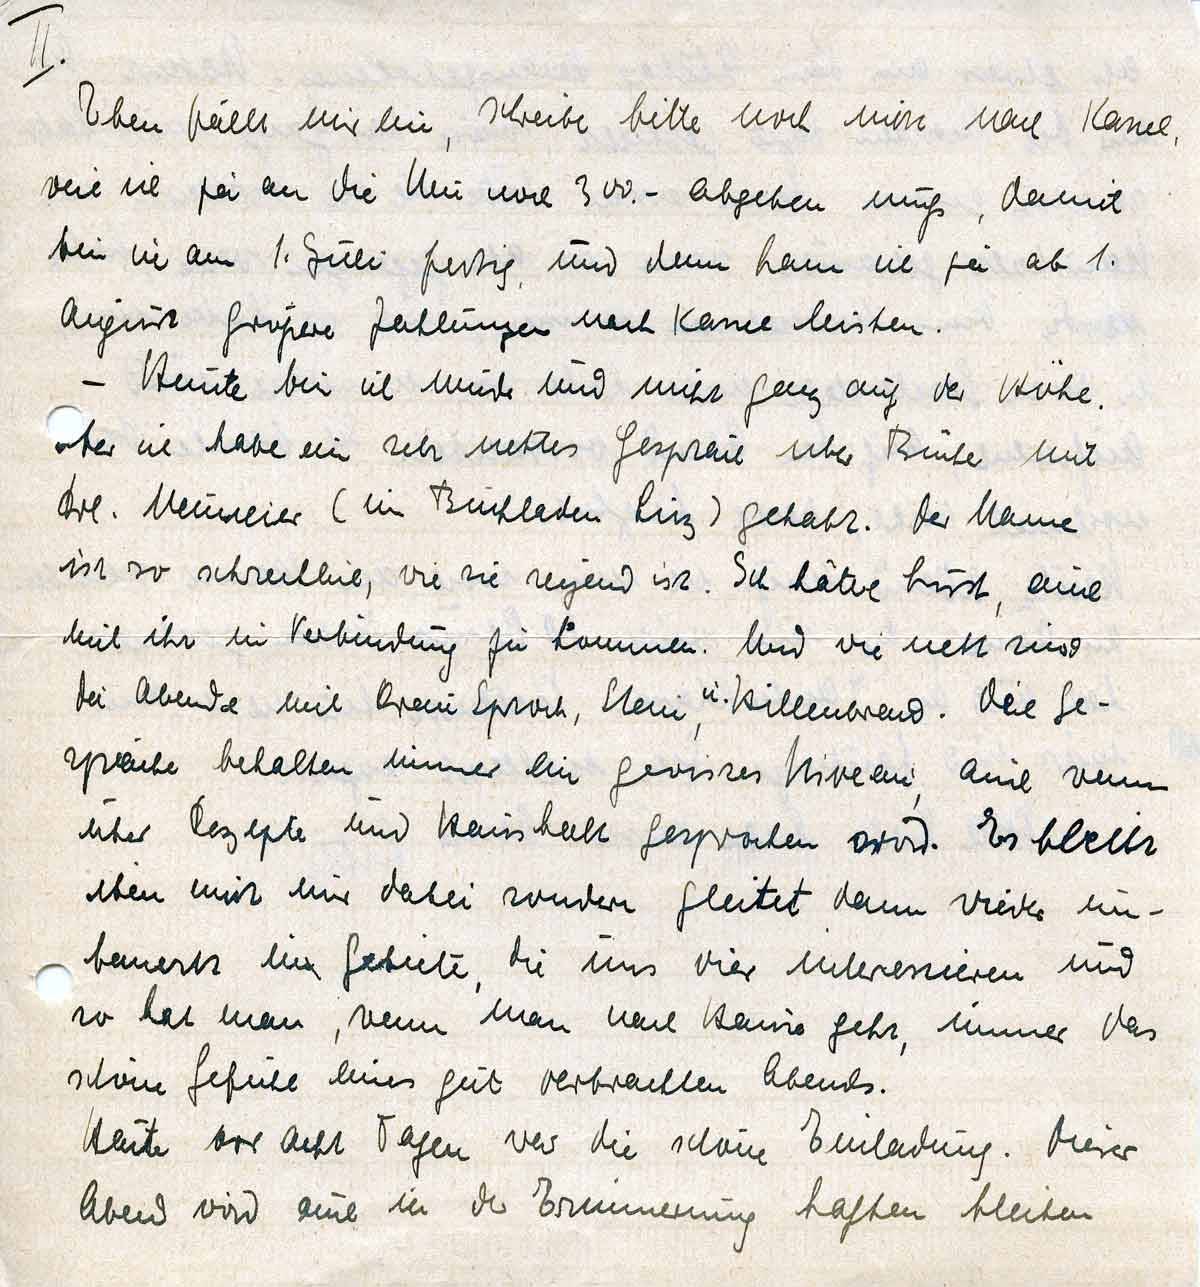 II.
Eben fällt mir ein, schreibe bitte noch nicht nach Kassel,
weil ich ja an die Uni noch 300.- abgeben muß, damit
bin ich am 1. Juli fertig, und dann kann ich ja ab 1.
August größere Zahlungen nach Kassel leisten.
- Heute bin ich müde und nicht ganz auf der Höhe.
Aber ich habe ein sehr nettes Gespräch über Bücher mit
Frl. Neumeier (im Buchladen Linz) gehabt. Der Name
ist so schrecklich, wie sie reizend ist. Ich hätte Lust, auch
mit ihr in Verbindung zu kommen. Und wie nett sind
die Abende mit Frau Sproch, Steni, u. Hillenbrand. Die Ge-
spräche behalten immer ein gewisses Niveau, auch wenn
über Rezepte und Haushalt gesprochen wird. Es bleibt
eben nicht nur dabei sondern gleitet dann wieder un-
bemerkt in Gebiete, die uns vier interessieren und
so hat man, wenn man nach Hause geht, immer das
schöne Gefühl eines gut verbrachten Abends.
Heute vor acht Tagen war die schöne Einladung. Dieser
Abend wird auch in der Erinnerung haften bleiben